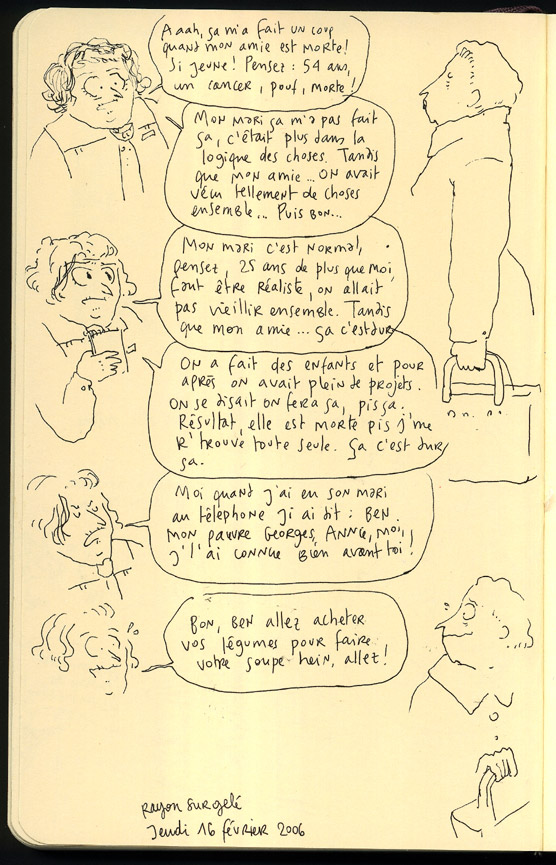 Aaah, ça m'a fait un coup
quand mon amie est morte!
Si jeune! Pensez : 54 ans,
un cancer, pouf, morte!
Mon mari ça m'a pas fait
ça, c'était plus dans la
logique des choses. Tandis
que mon amie... on avait
vécu tellement de choses
ensemble... Puis bon...
Mon mari c'est normal,
pensez, 25 ans de plus que moi,
faut être réaliste, on allait
pas vieillir ensemble. Tandis
que mon amie... ça c'est dur
On a fait des enfants et pour
après on avait plein de projets.
On se disait on fera ça, pis ça.
Résultat, elle est morte pis j'me
r'trouve toute seule. Ça c'est dur
ça.
Moi quand j'ai eu son mari
au téléphone j'i ai dit : ben
mon pauvre Georges, Anne, moi,
j'l'ai connue bien avant toi!
Bon, ben allez acheter
vos légumes pour faire
votre soupe hein, allez!
rayon surgelé
Jeudi 16 février 2006